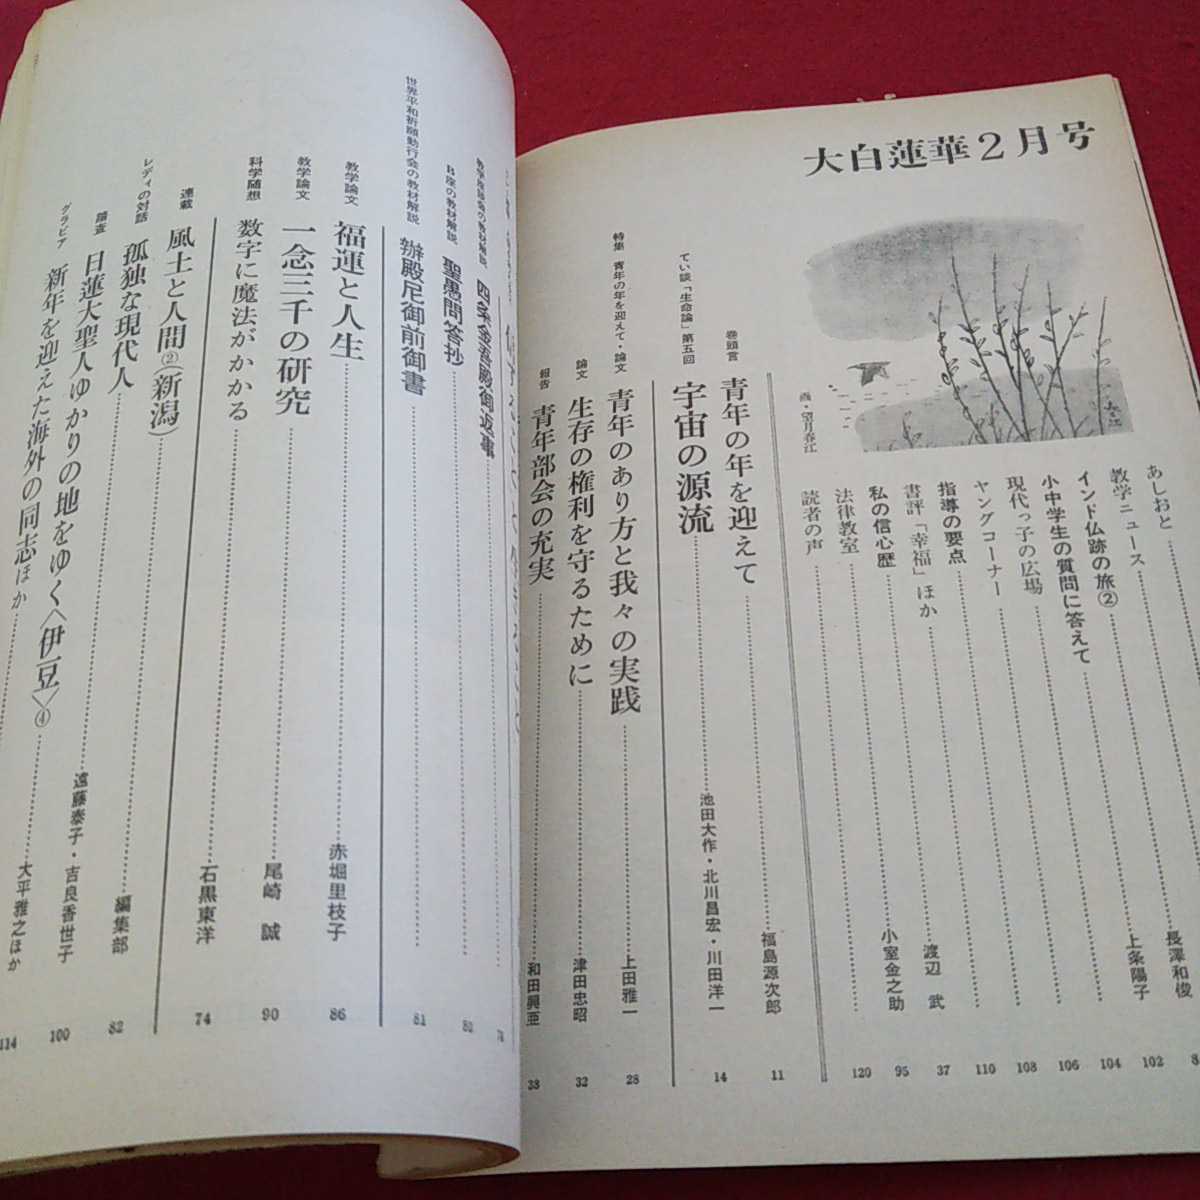 大白蓮華2月号
画・望月春江
あしおと 長澤和俊 8
教学ニュース 上条陽子 102
インド仏跡の旅② 104
小中学生の質問に答えて 106
現代っ子の広場 108
ヤングコーナー 110
指導の要点 37
書評「幸福」ほか 渡辺 武 95
私の信心歴 小室金之助 120
法律教室
読者の声
巻頭言 青年の年を迎えて 福島源次郎 11
てい談「生命論」第五回 宇宙の源流 池田大作・北川昌宏・川田洋一 14
特集 青年の年を迎えて・論文 青年のあり方と我々の実践 上田雅一 28
論文 生存の権利を守るために 津田忠昭 32
報告 青年部会の充実 和田興亜 38
教学座談会の教材解説 四条金吾殿御返事 78
B座の教材解説 聖愚問答抄 80
世界平和祈願勤行会の教材解説 辦殿尼御前御書 81
教学論文 福運と人生 赤堀里枝子 86
教学論文 一念三千の研究 尾崎 誠 90
科学随想 数字に魔法がかかる 石黒東洋 74
連載 風土と人間②(新潟) 編集部 82
レディの対話 孤独な現代人 遠藤泰子・吉良香世子 100
踏査 日蓮大聖人ゆかりの地をゆく〈伊豆〉④ 大平雅之ほか 114
グラビア 新年を迎えた海外の同志ほか